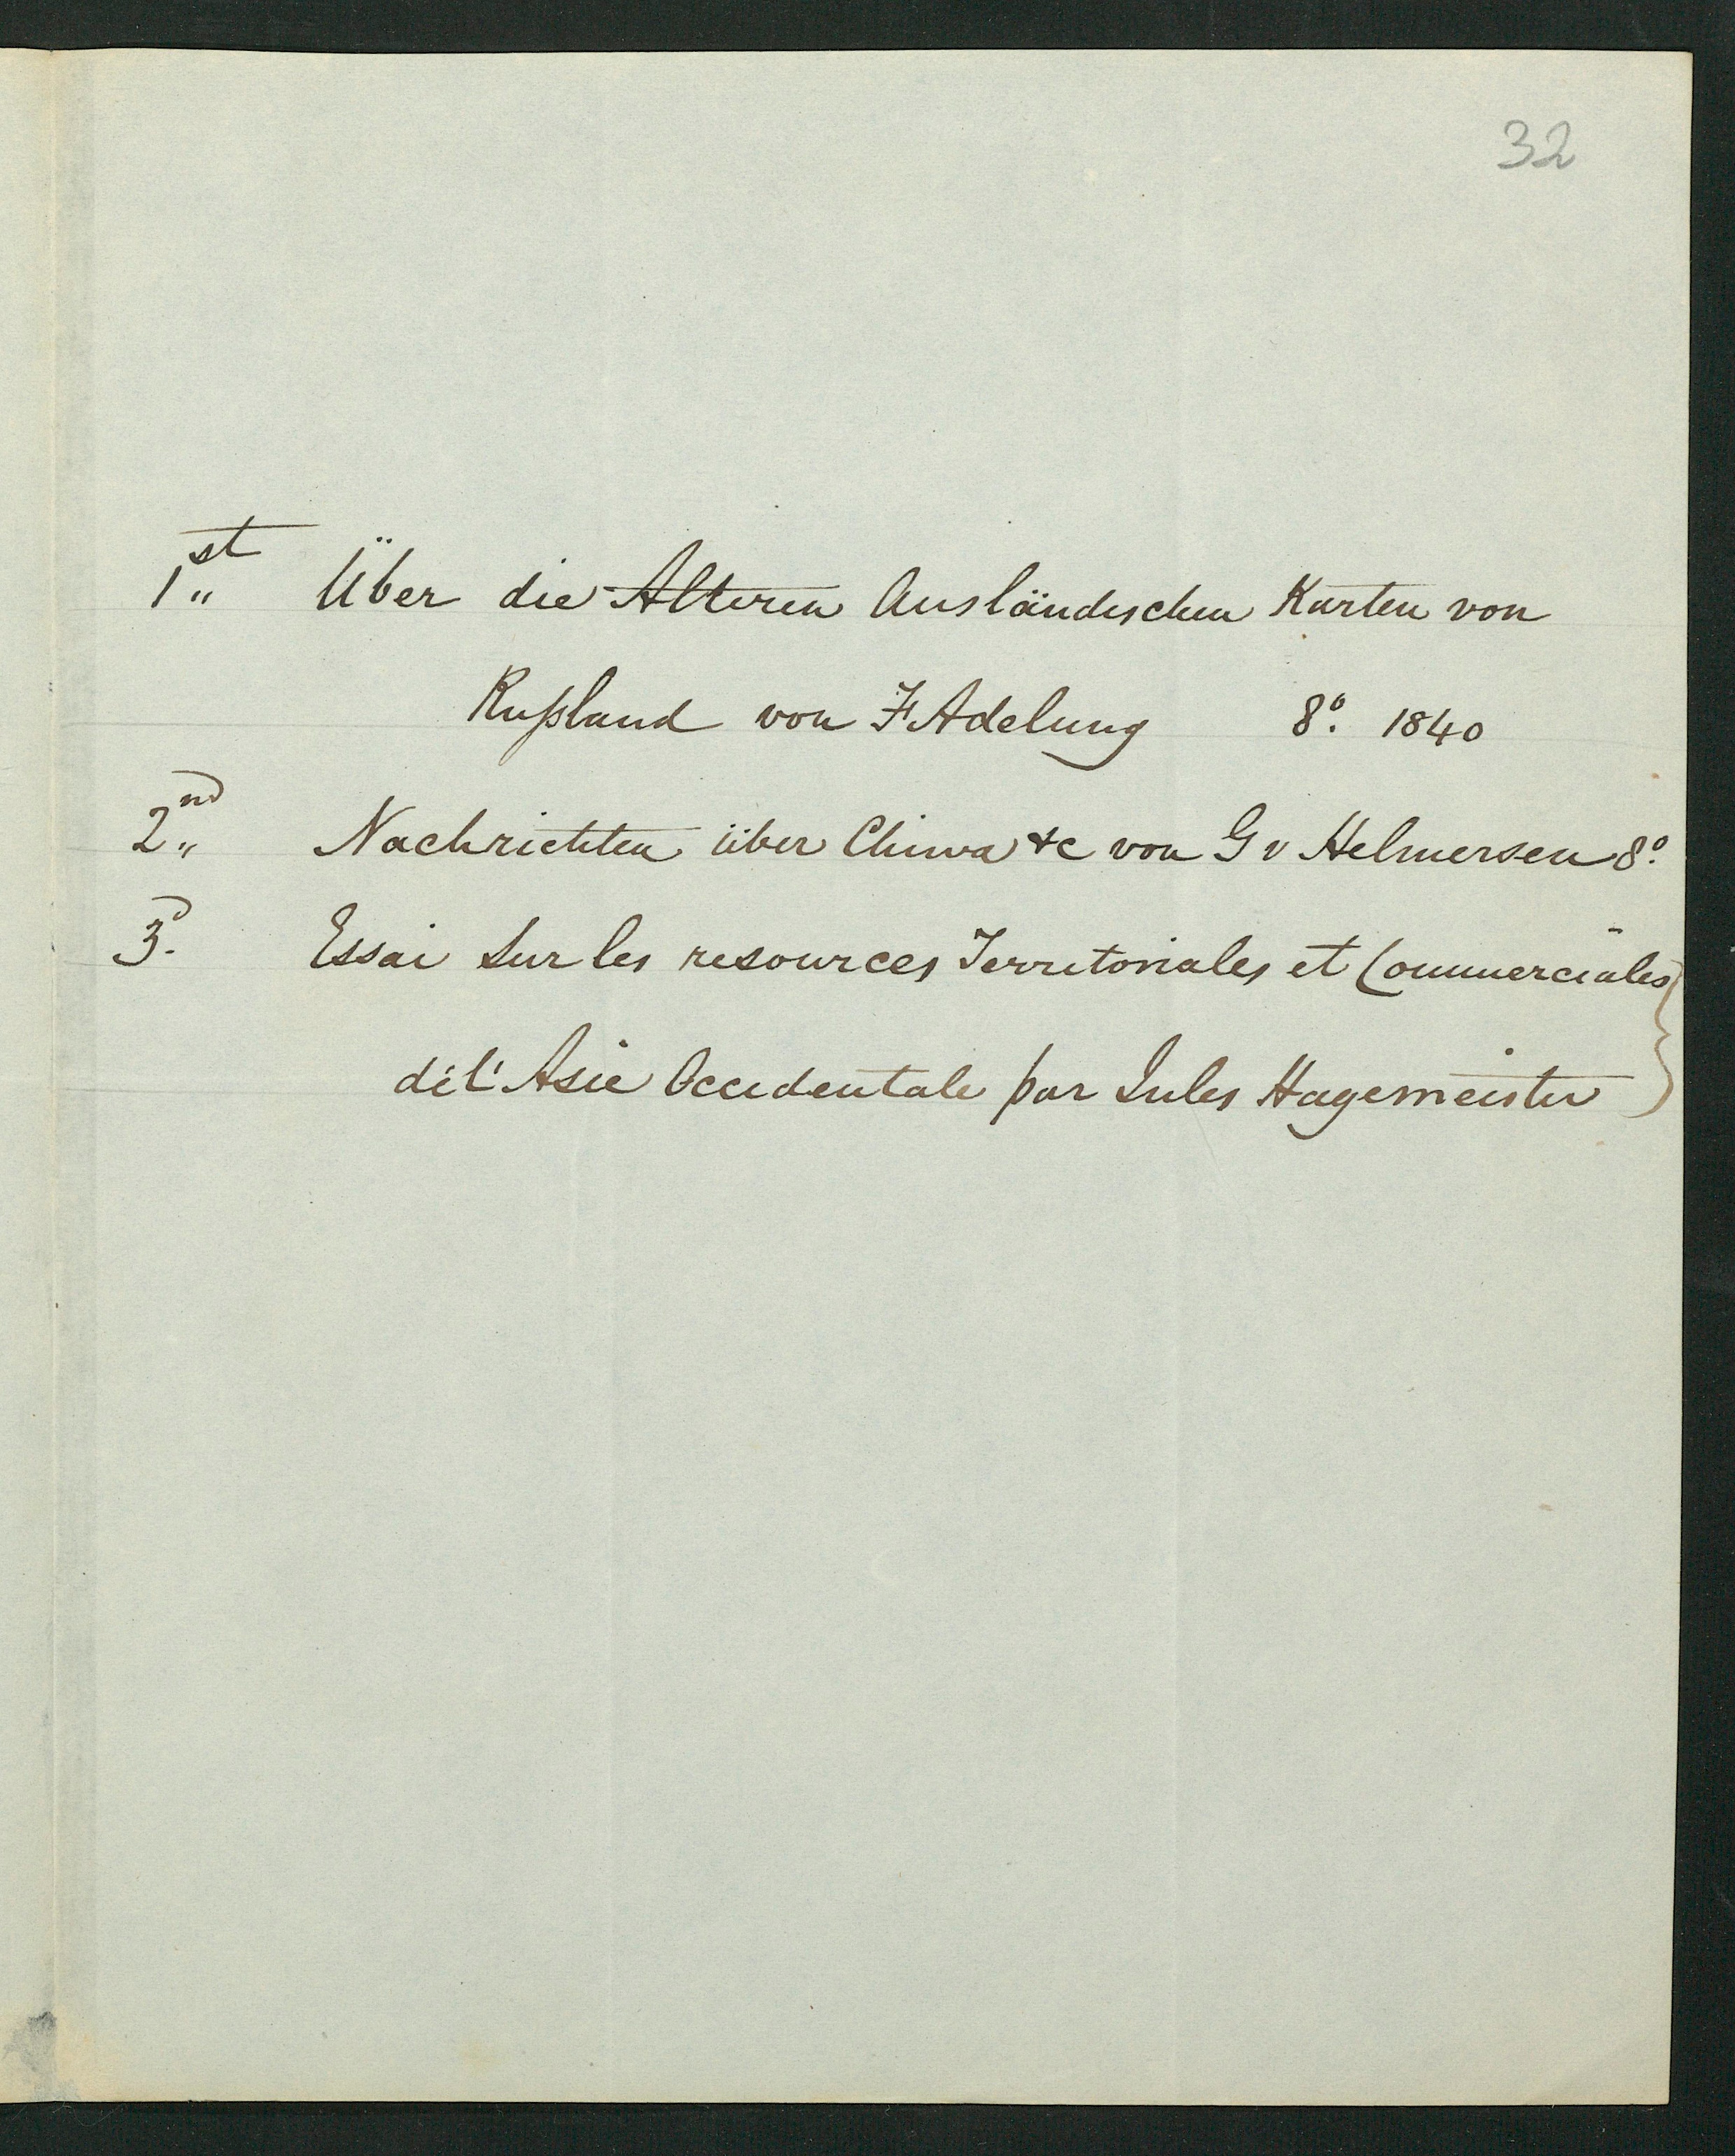 32
1st Über die Alteren Ausländischen Karten von
Rußland von F Adelung 8o. 1840
2nd Nachrichten über Chiwa &c von G v Helmersen 8o.
3d. Essai Sur les resources Territoriales et Commerciales
de l'Asie Occidentale par Jules Hagemeister